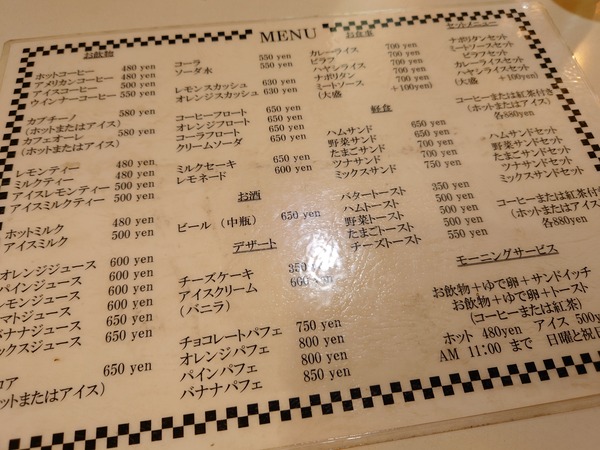 MENU
お飲物
ホットコーヒー 480 yen
アメリカンコーヒー 480 yen
アイスコーヒー 500 yen
ウインナーコーヒー 550 yen
カプチーノ 580 yen
(ホットまたはアイス)
カフェオーレ 580 yen
(ホットまたはアイス)
レモンティー 480 yen
ミルクティー 480 yen
アイスレモンティー 500 yen
アイスミルクティー 500 yen
ホットミルク 480 yen
アイスミルク 500 yen
オレンジジュース 600 yen
パインジュース 600 yen
レモンジュース 600 yen
マトジュース 600 yen
バナナジュース 650 yen
ックスジュース 650 yen
コア 650 yen
ットまたはアイス)
コーラ 550 yen
ソーダ水 550 yen
レモンスカッシュ 630 yen
オレンジスカッシュ 630 yen
コーヒーフロート 650 yen
オレンジフロート 650 yen
コーラフロート 650 yen
クリームソーダ 650 yen
ミルクセーキ 650 yen
レモネード 600 yen
お酒
ビール (中瓶) 650 yen
デザート
チーズケーキ 350 yen
アイスクリーム 600 yen
(バニラ)
チョコレートパフェ 750 yen
オレンジパフェ 800 yen
パインパフェ 800 yen
バナナパフェ 850 yen
お食事
カレーライス 700 yen
ピラフ 700 yen
ハヤシライス 700 yen
ナポリタン 700 yen
ミートソース 700 yen
(大盛 +100yen)
軽食
ハムサンド 650 yen
野菜サンド 650 yen
たまごサンド 700 yen
ツナサンド 700 yen
ミックスサンド 750 yen
バタートースト 350 yen
ハムトースト 500 yen
野菜トースト 500 yen
たまごトースト 500 yen
チーズトースト 550 yen
セットメニュー
ナポリタンセット
ミートソースセット
ピラフセット
カレーライスセット
ハヤシライスセット
(大盛 +100yen)
コーヒーまたは紅茶付き
(ホットまたはアイス)
各880yen
ハムサンドセット
野菜サンドセット
たまごサンドセット
ツナサンドセット
ミックスサンドセット
コーヒーまたは紅茶付
(ホットまたはアイス)
各880yen
モーニングサービス
お飲物+ゆで卵+サンドイッチ
お飲物+ゆで卵+トースト
(コーヒーまたは紅茶)
ホット 480yen アイス 500y
AM 11:00 まで 日曜と祝日